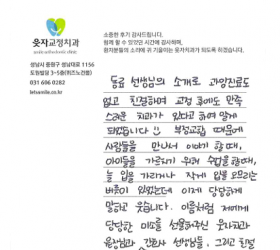 웃자교정치과
소중한 후기 감사드립니다.
함께 할 수 있었던 시간에 감사하며,
환자분들의 소리에 귀 기울이는 웃자교정치과가 되도록 하겠습니다.
성남시 중원구 성남대로 1156
031 696 0282
동료 선생님의 소개로 과잉진료도
없고 친절하여 교정 후에도 만족
스러운 치과가 있다고 하여 알게
되었습니다 부정교합 때문에
사람들을 만나서 이야기 할 때,
아이들을 가르치기 위해 수업을 할때,
늘 입을 가리거나 작게 입을 오므리는
버릇이 있었는데 이제 당당하게
말하고 웃습니다. 이름처럼 저에게
당당한 미소를 선물해주신 웃자치과
원장님과 간호사 선생님들, 그리고 친절